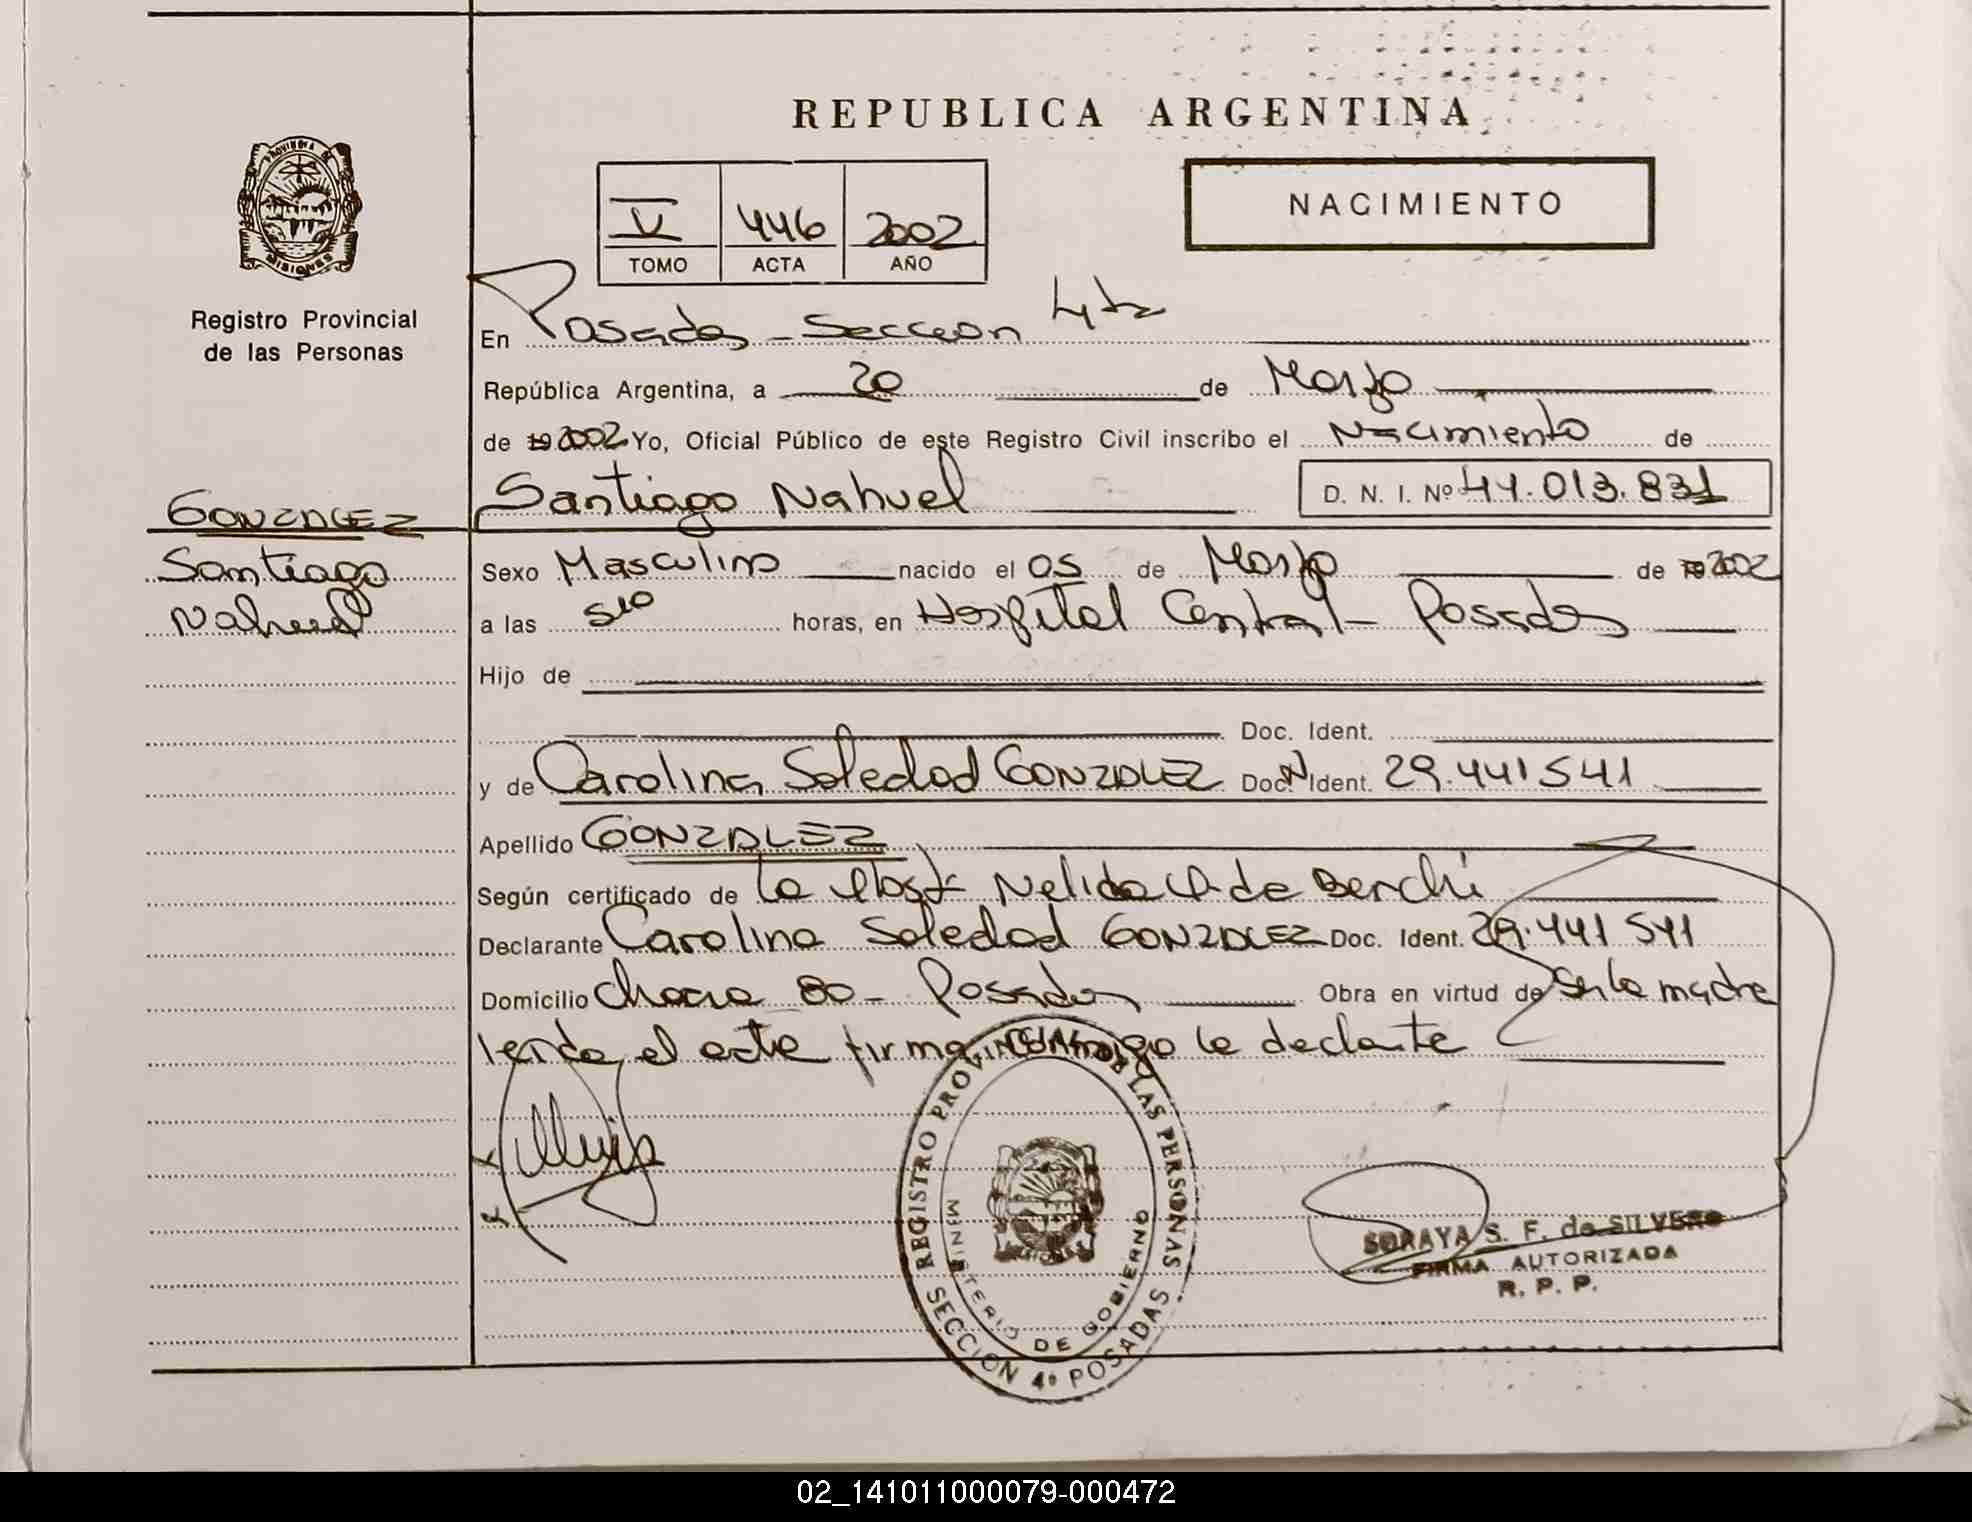 REPUBLICA ARGENTINA
PROVINCIA DE MISIONES
Registro Provincial
de las Personas
V 446 2002
TOMO ACTA AÑO
NACIMIENTO
En Posadas - Seccion 4ta
República Argentina, a 20 de Marzo
de 19 2002 Yo, Oficial Público de este Registro Civil inscribo el Nacimiento de
Santiago Nahuel D. N. I. Nº 44.013.831
GONZALEZ
Santiago
Nahuel
Sexo Masculino nacido el 05 de Marzo de 19 2002
a las 5:10 horas, en Hospital Central - Posadas
Hijo de
Doc. Ident.
y de Carolina Soledad GONZALEZ Doc. Ident. 29.441541
Apellido GONZALEZ
Según certificado de la Obst Nelida de Berchi
Declarante Carolina Soledad GONZALEZ Doc. Ident. 29.441541
Domicilio Chacra 80 - Posadas Obra en virtud de ser la madre
leida el acta firma conmigo la declarante
REGISTRO PROVINCIAL DE LAS PERSONAS
MINISTERIO DE GOBIERNO
SECCION 4º POSADAS
SORAYA S. F. de SILVERO
FIRMA AUTORIZADA
R. P. P.
02_141011000079-000472